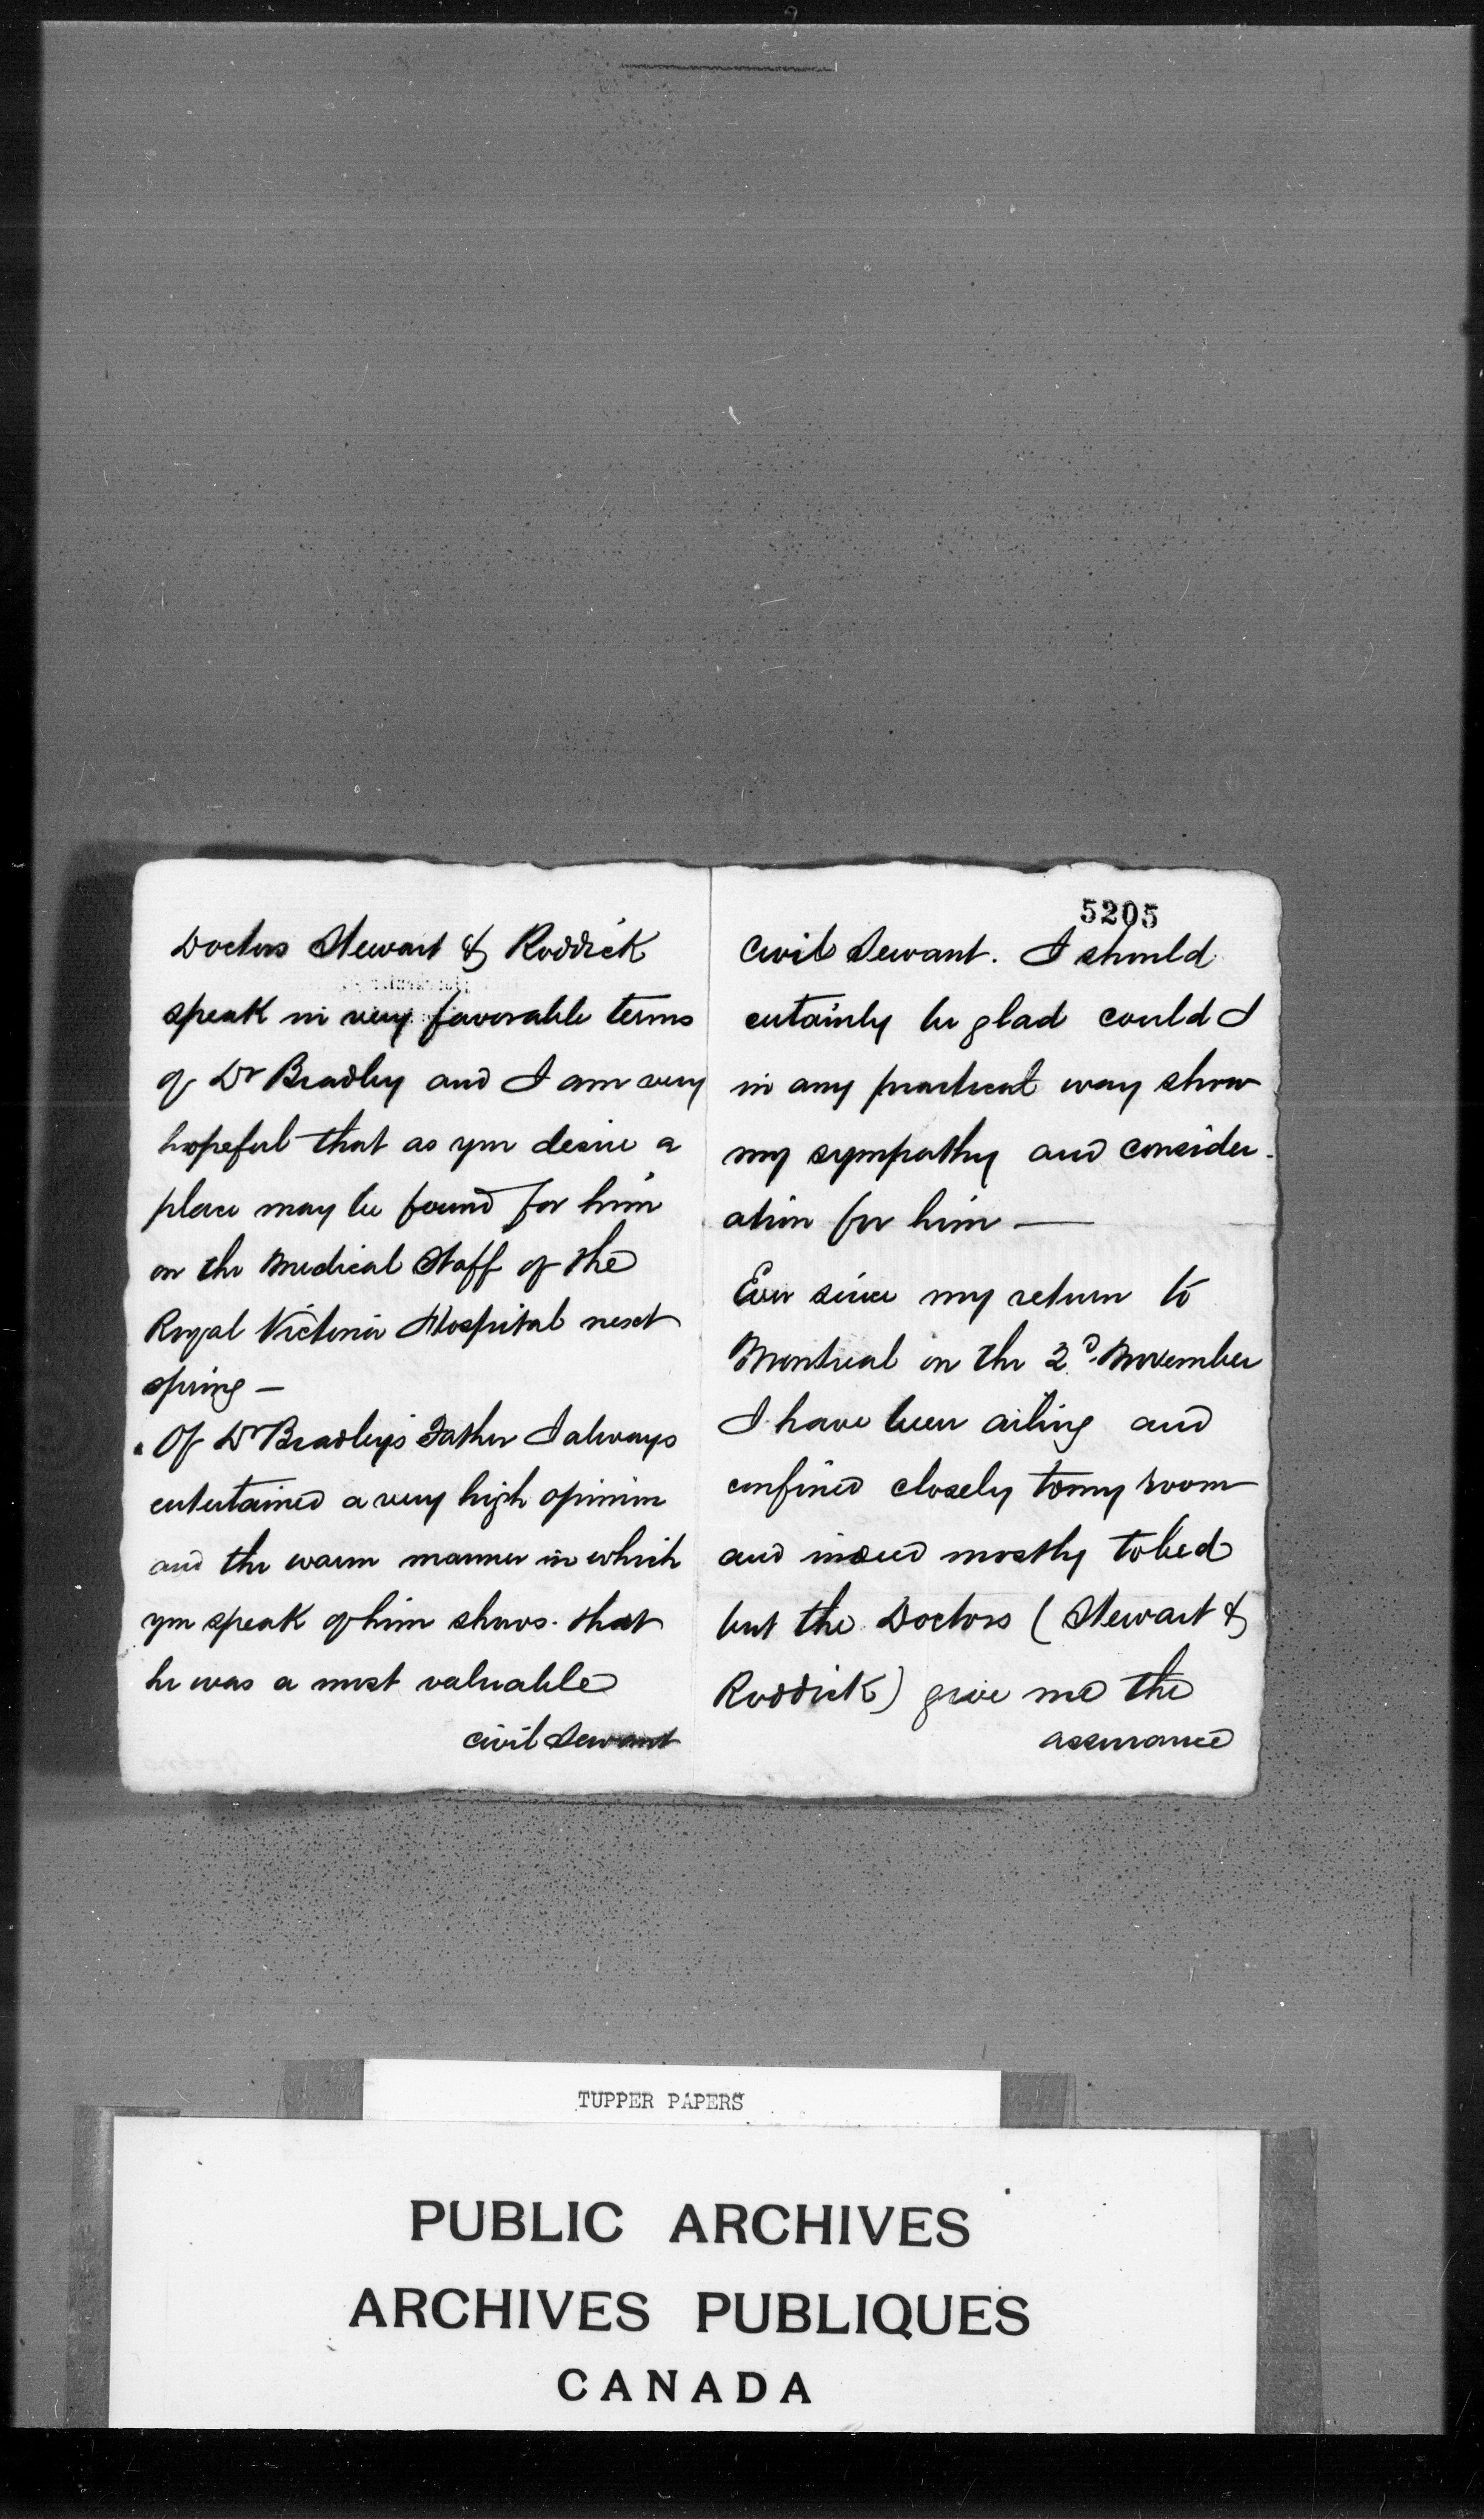 Doctors Stewart & Roddick
speak in very favorable terms
of Dr Bradley and I am very
hopeful that as you desire a
place may be found for him
on the Medical Staff of the
Royal Victoria Hospital next
spring —
Of Dr Bradley's Father I always
entertained a very high opinion
and the warm manner in which
you speak of him shows that
he was a most valuable
civil Servant
5205
Civil Servant. I should
certainly be glad could I
in any practical way show
my sympathy and consider-
ation for him —
Ever since my return to
Montreal on the 2d November
I have been ailing and
confined closely to my room
and indeed mostly to bed
but the Doctors (Stewart &
Roddick) give me the
assurance
TUPPER PAPERS
PUBLIC ARCHIVES
ARCHIVES PUBLIQUES
CANADA